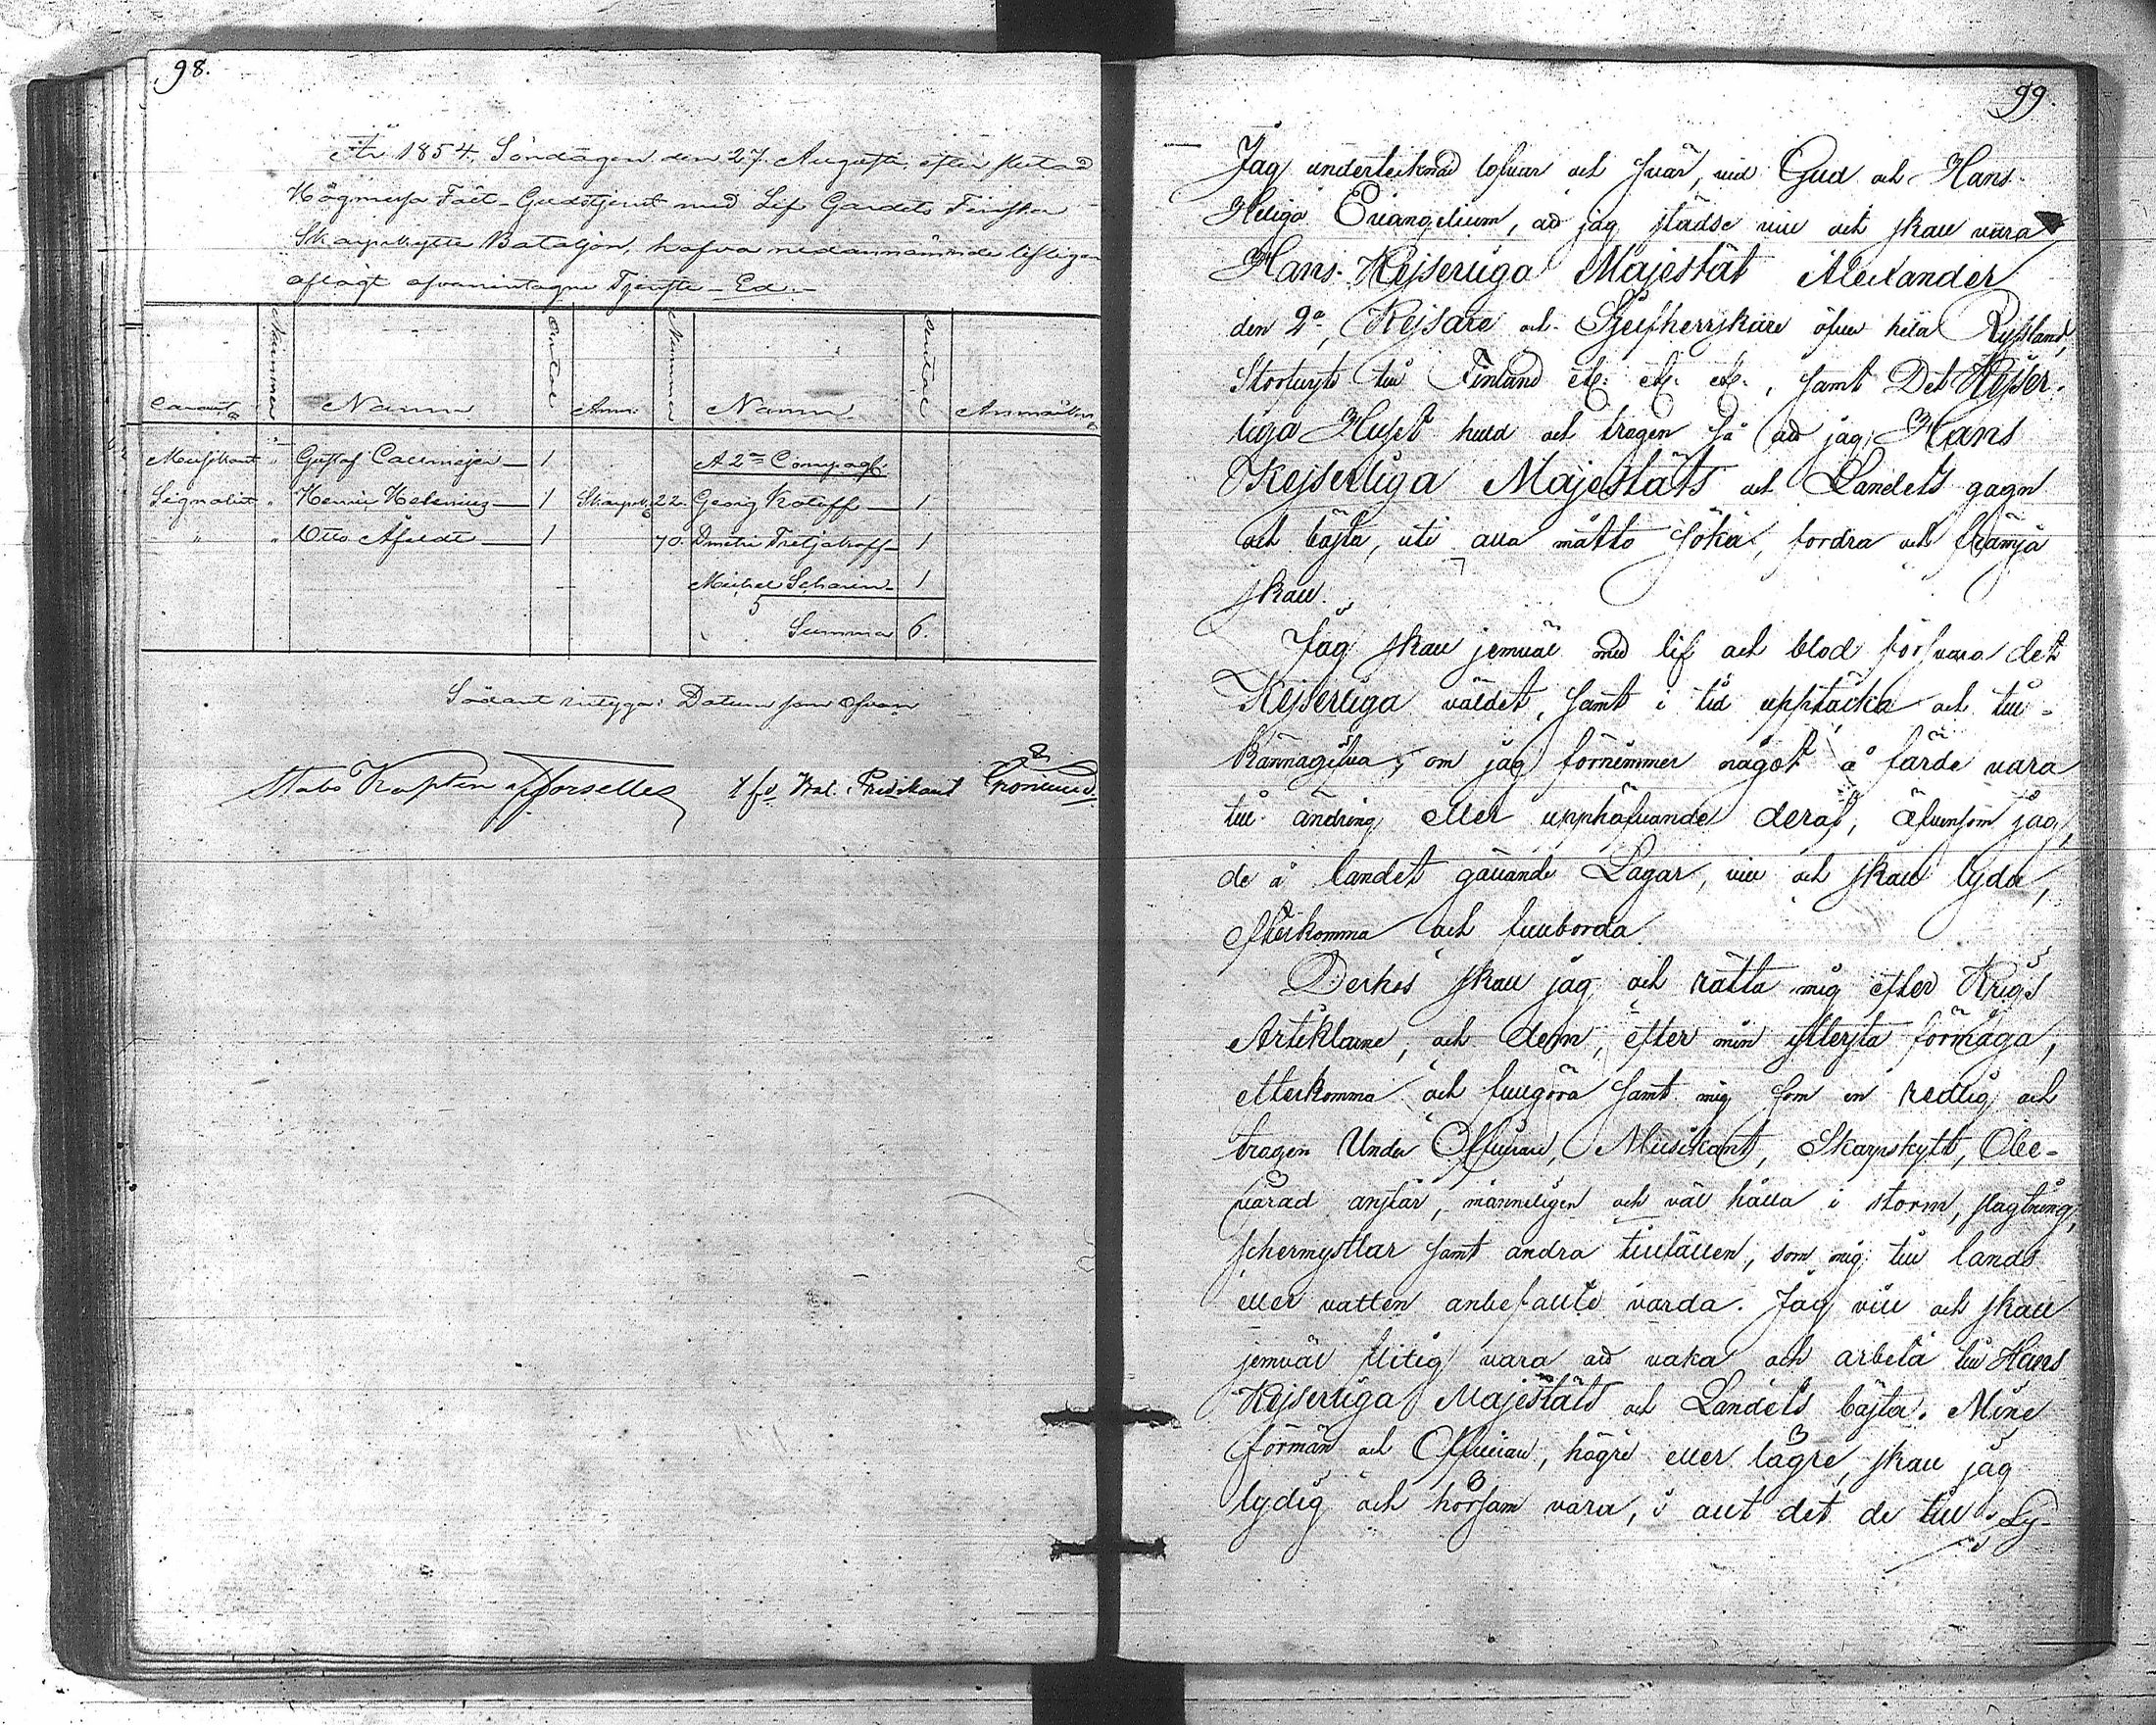 98.
År 1854. Söndagen den 27 Augusti, efter slutad
Högmesso Fält-Gudstjenst med Lif Gardets Finska
Skarpskytte Bataljon, hafva nedannämnde lifligen
aflagt ofvanintagne Tjenste-Ed.-
Caract. Nummer Namn Antal Anm: Nummer Namn Antal Anmärkn.
Musikant " Gustaf 1 A 2=a Compagt.
Signalist " Henric Helenius 1 Skarpsk. 22. Georg Koloff 1
" " Otto 1 70. Dmitri Tretjakoff 1
Michel Scharin 1
Summa 6.
Sådant intygar: Datum som ofvan
Stabs Kapten af Forselles t.f. Bat. Predikant
99.
Jag undertecknad lofvar och svär, vid Gud och Hans
Heliga Evangelium, ad jag städse vill och skall vara
Hans Kejserliga Majestät Alexander
den 2a, Kejsare och Sjelfherrskare öfver hela Ryssland,
Storfurste till Finland etc. etc. etc., samt Det Kejser-
liga Huset huld och trogen så ad jag Hans
Kejserliga Majestäts och Landets gagn
och bästa, uti alla måtto söka, fordra och främja
skall.
Jag skall jemväl med lif och blod försvara det
Kejserliga väldet, samt i tid upptäcka och till-
kännagifva, om jag förnimmer något å färde vara
till ändring eller upphäfvande deraf, äfvensom jag,
de å landet gällande Lagar, vill och skall lyda,
efterkomma och fullborda.
Derhos skall jag och rätta mig efter Krigs
Artiklarne, och dem, efter min ytterста förmåga,
efterkomma och fullgöra samt mig som en redlig och
trogen Under Officerare, Musikant, Skarpskytt, Obe-
värad anstår, manneligen och väl hålla i storm, slagtning,
schermytslar samt andra tillfällen, som mig till lands
eller vatten anbefallte varda. Jag vill och skall
jemväl flitig vara ad vaka och arbeta till Hans
Kejserliga Majestäts och Landets bästa. Mine
förmän och Officerare, högre eller lägre, skall jag
lydig och hörsam vara, i allt det de till Ly-